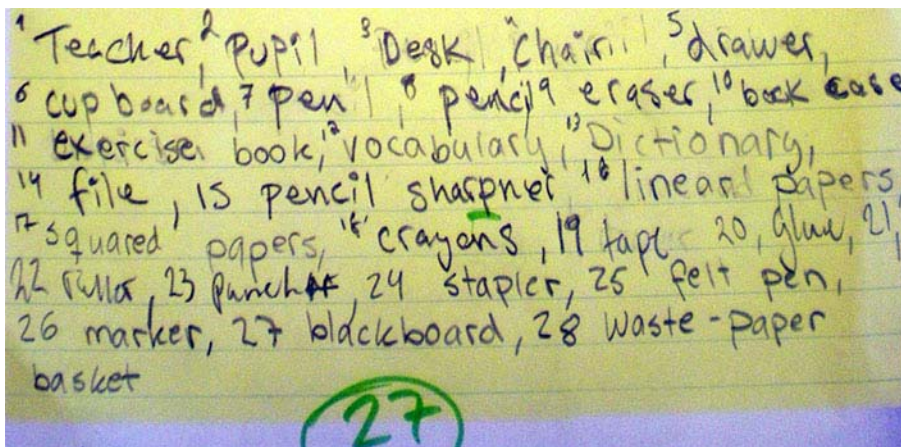 1 Teacher, 2 Pupil, 3 Desk, 4 Chair, 5 drawer,
6 cupboard, 7 pen, 8 pencil, 9 eraser, 10 book case
11 exercise book, 12 vocabulary, 13 Dictionary,
14 file, 15 pencil sharpner 16 lineard papers
17 squared papers, 18 crayons, 19 tape 20, glue, 21,
22 ruller, 23 punch, 24 stapler, 25 felt pen,
26 marker, 27 blackboard, 28 waste-paper
basket
27